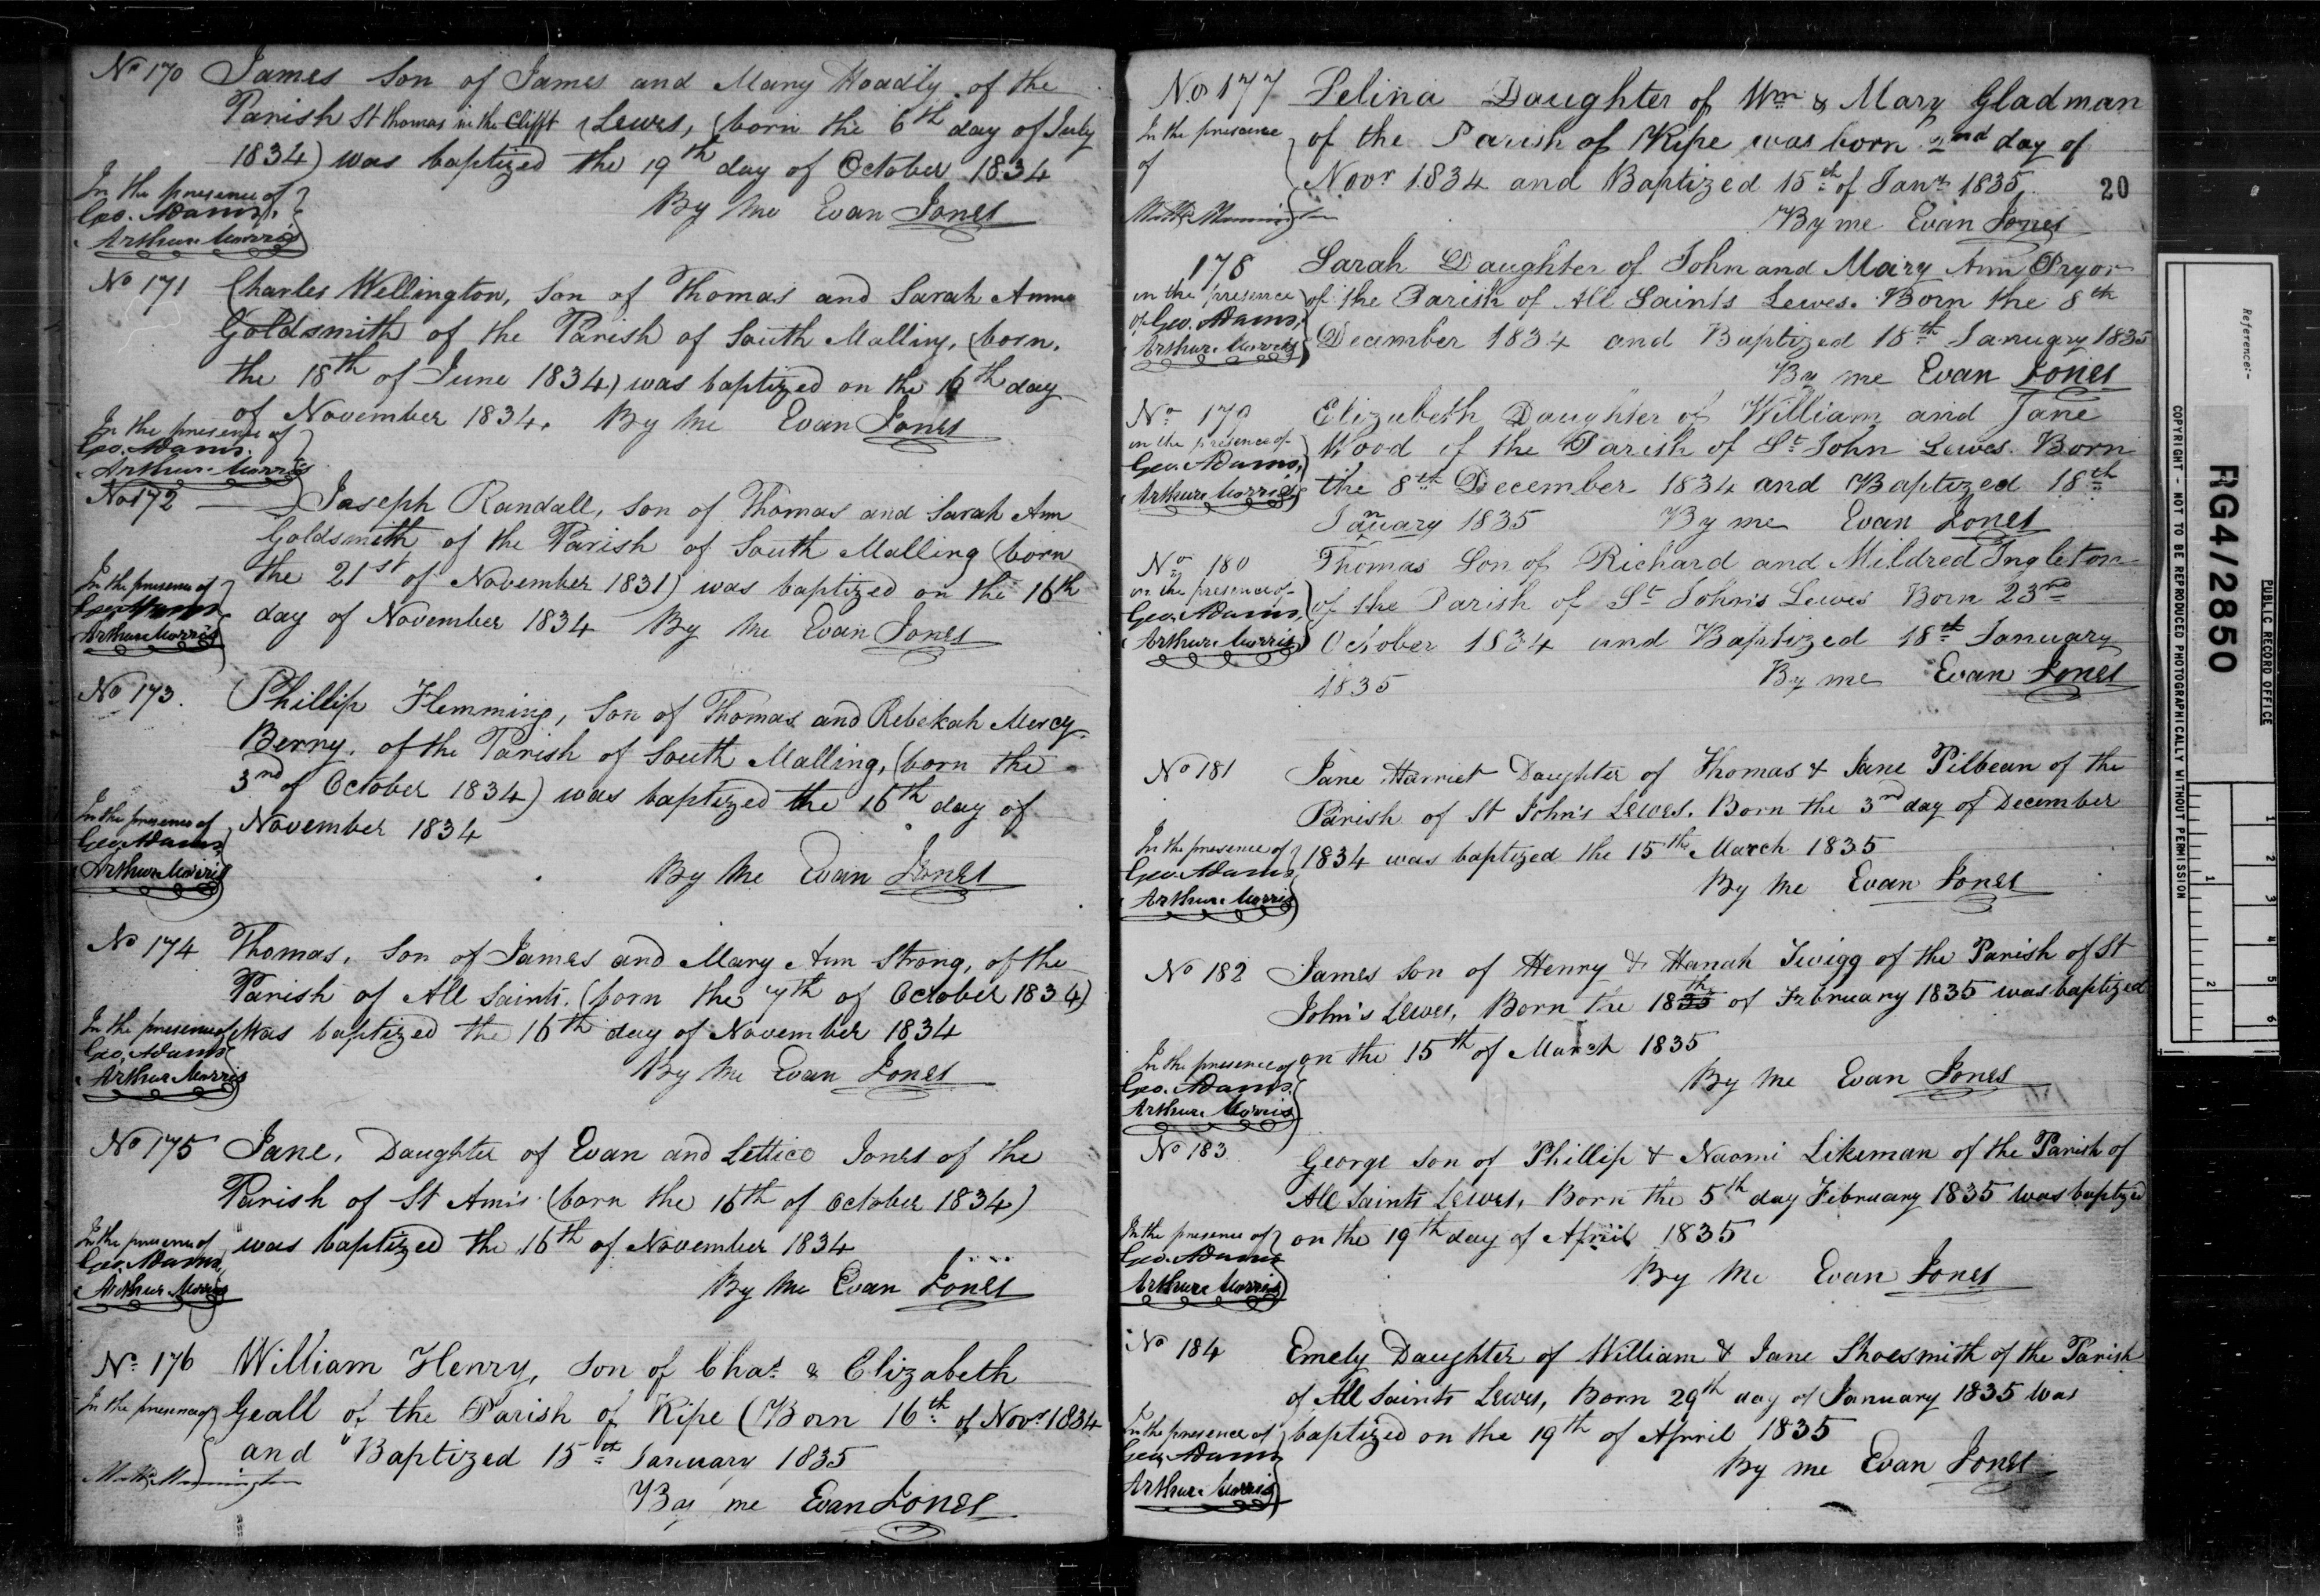 No 170 James Son of James and Mary Hoadly of the
Parish St Thomas in the Clifft (Lewes, (born the 6th day of July
1834) was baptized the 19th day of October 1834
In the presence of
Geo. Adams,
Arthur Morris
By Me Evan Jones
No 171 Charles Wellington, Son of Thomas and Sarah Anne
Goldsmith of the Parish of South Malling, (born,
the 18th of June 1834) was baptized on the 16th day
of November 1834. By Me Evan Jones
In the presence of
Geo. Adams.
Arthur Morris
No 172 Joseph Randall, Son of Thomas and Sarah Ann
Goldsmith of the Parish of South Malling (born
the 21st of November 1831) was baptized on the 16th
day of November 1834 By Me Evan Jones
In the presence of
Geo Adams
Arthur Morris
No 173. Phillip Flemming, Son of Thomas and Rebekah Mercy
Berry, of the Parish of South Malling, (born the
3rd of October 1834) was baptized the 16th day of
November 1834
In the presence of
Geo. Adams
Arthur Morris
By Me Evan Jones
No 174 Thomas, Son of James and Mary Ann Strong, of the
Parish of All Saints. (born the 7th of October 1834)
Was baptized the 16th day of November 1834
In the presence of
Geo. Adams
Arthur Morris
By Me Evan Jones
No 175 Jane, Daughter of Evan and Lettice Jones of the
Parish of St Ann's (born the 16th of October 1834)
was baptized the 16th of November 1834
In the presence of
Geo. Adams,
Arthur Morris
By Me Evan Jones
No 176 William Henry, Son of Chas & Elizabeth
Geall of the Parish of Ripe (Born 16th of Novr 1834
and Baptized 15th January 1835
In the presence of
By me Evan Jones
No 177 Selina Daughter of Wm & Mary Gladman
of the Parish of Ripe was born 2nd day of
Novr 1834 and Baptized 15th of Jany 1835.
In the presence
of
By me Evan Jones
20
178 Sarah Daughter of John and Mary Ann Pryor
of the Parish of All Saints Lewes. Born the 8th
December 1834 and Baptized 18th January 1835
in the presence
of Geo. Adams,
Arthur Morris
By me Evan Jones
No 179 Elizabeth Daughter of William and Jane
Wood of the Parish of St John Lewes. Born
the 8th December 1834 and Baptized 18th
January 1835 By me Evan Jones
in the presence of
Geo. Adams,
Arthur Morris
No 180 Thomas Son of Richard and Mildred Ingleton
of the Parish of St John's Lewes Born 23rd
October 1834 and Baptized 18th January
1835 By me Evan Jones
in the presence of
Geo. Adams,
Arthur Morris
No 181 Jane Harriet Daughter of Thomas & Jane Pilbean of the
Parish of St John's Lewes. Born the 3rd day of December
1834 was baptized the 15th March 1835
In the presence of
Geo. Adams
Arthur Morris
By Me Evan Jones
No 182 James Son of Henry & Hanah Twigg of the Parish of St
John's Lewes, Born the 18th of February 1835 was baptized
on the 15th of March 1835
In the presence of
Geo. Adams.
Arthur Morris
By Me Evan Jones
No 183 George Son of Phillip & Naomi Likeman of the Parish of
All Saints Lewes, Born the 5th day February 1835 was baptized
on the 19th day of April 1835
In the presence of
Geo. Adams
Arthur Morris
By Me Evan Jones
No 184 Emely Daughter of William & Jane Shoesmith of the Parish
of All Saints Lewes, Born 29th day of January 1835 was
baptized on the 19th of April 1835
In the presence of
Geo. Adams
Arthur Morris
By me Evan Jones
Reference:-
RG4/2850
PUBLIC RECORD OFFICE
COPYRIGHT - NOT TO BE REPRODUCED PHOTOGRAPHICALLY WITHOUT PERMISSION
1 2 3 4 5 6
1 2